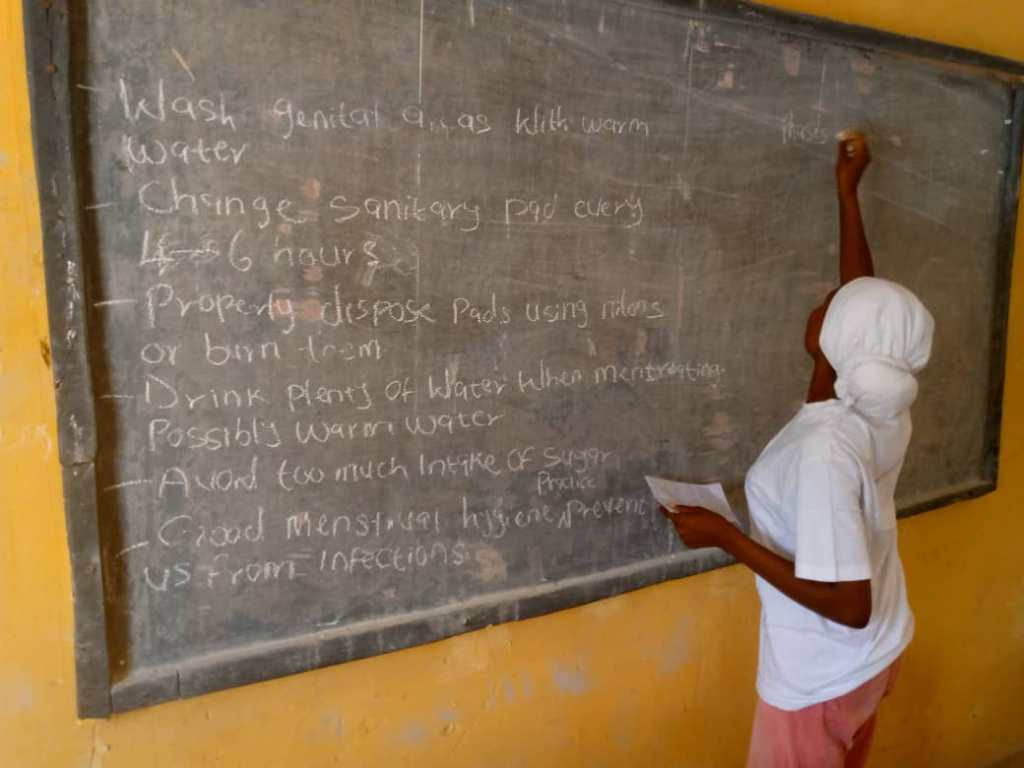 - Wash genital areas With warm
Water
- Change sanitary pad every
4-6 hours
- Properly dispose Pads using nilons
or burn them
- Drink plenty of Water When menstreating.
Possibly warm water
- Avoid too much Intake of sugar
Practice
- Good Menstrual hygiene, Prevent
us from Infections
Phases